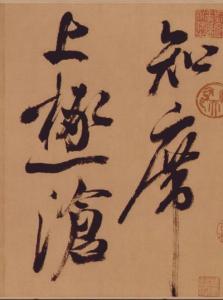 知席
上極滄